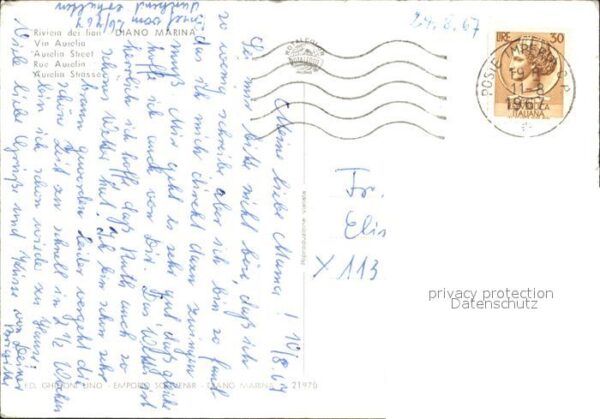 Riviera dei fiori DIANO MARINA
Via Aurelia
Aurelia Street
Rue Aurelia
Aurelia Strasse
24.8.67
LIRE 30
ITALIANA
POSTE IMPERIA C.P.
19
11-8
1967
Meine liebe Mama! 10/8.67
Sei mir bitte nicht böse, daß ich
so wenig schreibe aber ich bin so faul
daß ich mich direkt dazu zwingen
muß. Mir geht es sehr gut dasselbe
hoffe ich auch von Dir. Das Wetter ist
herrlich ich hoffe daß Ruth auch so
schönes Wetter hat. Ich bin schon sehr
braun geworden leider vergeht die
schöne Zeit zu schnell in 1 ½ Wochen
bin ich schon wieder zu Hause
Viele liebe Grüße und Küsse von Deiner
Brigitte
Fr.
Elis
X 113
Riproduzione vietata
privacy protection
Datenschutz
ED. GHIGLIONE UNO - EMPORIO SOUVENIR - DIANO MARINA - 21970